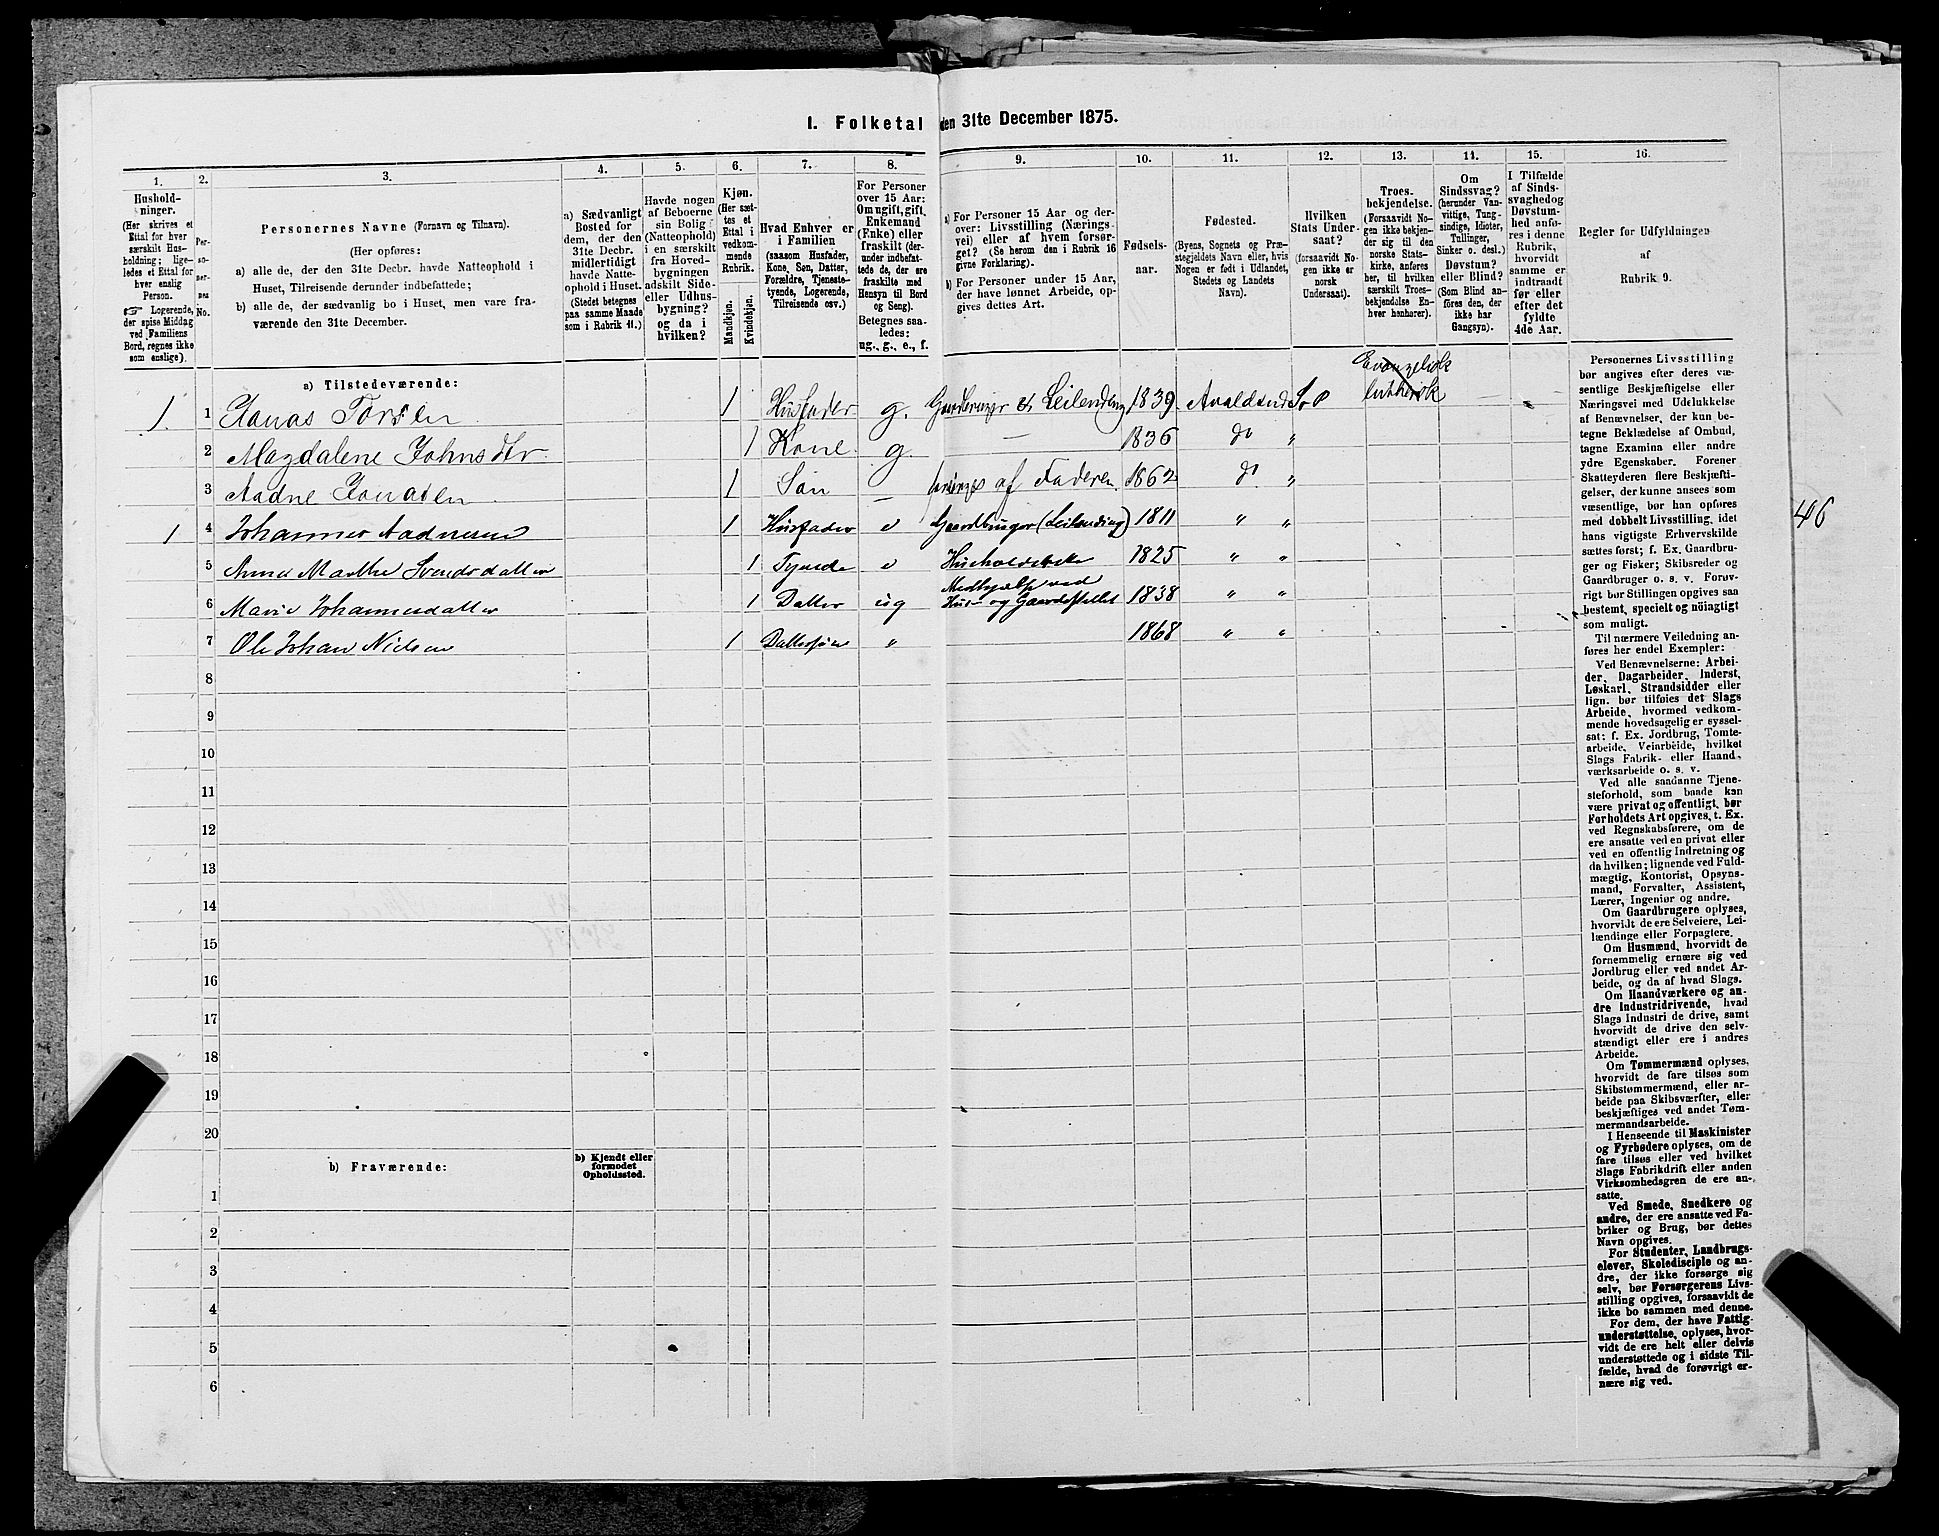 I. Folketal den 31te December 1875.
1. 2. 3. 4. 5. 6. 7. 8. 9. 10. 11. 12. 13. 14. 15. 16.
Hushold-
ninger.
(Her skrives et
Ettal for hver
særskilt Hus-
holdning; lige-
ledes et Ettal for
hver enslig
Person.
☞ Logerende,
der spise Middag
ved Familiens
Bord, regnes ikke
som enslige).
Per-
so-
ner-
nes
No.
Personernes Navne (Fornavn og Tilnavn).
(Her opføres:
a) alle de, der den 31te Decbr. havde Natteophold i
Huset, Tilreisende derunder indbefattede;
b) alle de, der sædvanlig bo i Huset, men vare fra-
værende den 31te December.
a) Sædvanligt
Bosted for
dem, der den
31te Decbr.
midlertidigt
havde Natte-
ophold i Huset.
(Stedet betegnes
paa samme Maade
som i Rubrik 11.)
Havde nogen
af Beboerne
sin Bolig
(Natteophold)
i en særskilt
fra Hoved-
bygningen
adskilt Side-
eller Udhus-
bygning?
og da i
hvilken?
Kjøn.
(Her sæt-
tes et
Ettal i
vedkom-
mende
Rubrik.
Mandkjøn.
Kvindekjøn.
Hvad Enhver er
i Familien
(saasom Husfader,
Kone, Søn, Datter,
Forældre, Tjeneste-
tyende, Logerende,
Tilreisende osv.)
For Personer
over 15 Aar:
Om ugift, gift,
Enkemand
(Enke) eller
fraskilt (der-
under indbefat-
tede de, der ere
fraskilte med
Hensyn til Bord
og Seng).
Betegnes saa-
ledes:
ug., g., e., f.
a) For Personer 15 Aar og der-
over: Livsstilling (Nærings-
vei) eller af hvem forsør-
get? (Se herom den i Rubrik 16
givne Forklaring).
b) For Personer under 15 Aar,
der have lønnet Arbeide, op-
gives dettes Art.
Fødsels-
aar.
Fødested.
(Byens, Sognets og Præ-
stegjeldets Navn eller, hvis
Nogen er født i Udlandet,
Stedets og Landets
Navn).
Hvilken
Stats Under-
saat?
(forsaavidt No-
gen ikke er
norsk
Undersaat).
Troes-
bekjendelse.
(Forsaavidt No-
gen ikke bekjen-
der sig til den
norske Stats-
kirke, anføres
her, til hvilken
særskilt Troes-
bekjendelse En-
hver henhører).
Om
Sindssvag?
(herunder Van-
vittige, Tung-
sindige, Idioter,
Tullinger,
Sinker o. desl.)
Døvstum?
eller Blind?
(Som Blind an-
føres den, der
ikke har
Gangsyn).
I Tilfælde
af Sinds-
svaghed og
Døvstum-
hed anfø-
res i denne
Rubrik,
hvorvidt
samme er
indtraadt
før eller
efter det
fyldte
4de Aar.
Regler for Udfyldningen
af
Rubrik 9.
a) Tilstedeværende:
Evangelisk
1. 1 Jonas Torsen 1 Husfader g. Gaardbruger & Leilending 1839 Avaldsnæs S. P. luthersk
2 Magdalene Johnsdtr 1 Kone g. — 1836 do "
3 Aadne Jonasen 1 Søn — forsørges af Faderen 1862 do "
1 4 Johannes Aadnesen 1 Husfader e Gaardbruger (Leilending) 1811 " "
5 Anna Marthe Svendsdatter 1 Tyende e Husholderske 1825 " "
6 Marie Johannesdatter 1 Datter ug Medhjælp ved Hus- og Gaardstellet 1838 " "
7 Ole Johan Nielsen 1 Dattersøn " 1868 " "
406
8
9
10
11
12
13
14
15
16
17
18
19
20
b) Fraværende:
b) Kjendt eller
formodet
Opholdssted.
1
2
3
4
5
6
Personernes Livsstilling
bør angives efter deres væ-
sentlige Beskjæftigelse eller
Næringsvei med Udelukkelse
af Benævnelser, der kun be-
tegne Beklædelse af Ombud,
tagne Examina eller andre
ydre Egenskaber. Forener
Skatteyderen flere Beskjæfti-
gelser, der kunne ansees som
væsentlige, bør han opføres
med dobbelt Livsstilling, idet
hans vigtigste Erhvervskilde
sættes først; f. Ex. Gaardbru-
ger og Fisker; Skibsreder og
Gaardbruger o. s. v. Forøv-
rigt bør Stillingen opgives saa
bestemt, specielt og nøiagtigt
som muligt.
Til nærmere Veiledning an-
føres her endel Exempler:
Ved Benævnelserne: Arbei-
der, Dagarbeider, Inderst,
Løskarl, Strandsidder eller
lign. bør tilføies det Slags
Arbeide, hvormed vedkom-
mende hovedsagelig er syssel-
sat; f. Ex. Jordbrug, Tomte-
arbeide, Veiarbeide, hvilket
Slags Fabrik- eller Haand-
værksarbeide o. s. v.
Ved alle saadanne Tjene-
steforhold, som baade kan
være privat og offentligt, bør
Forholdets Art opgives, t. Ex.
ved Regnskabsførere, om de
ere ansatte ved en privat eller
ved en offentlig Indretning og
da hvilken; lignende ved Fuld-
mægtig, Kontorist, Opsyns-
mand, Forvalter, Assistent,
Lærer, Ingeniør og andre.
Om Gaardbrugere oplyses,
hvorvidt de ere Selveiere, Lei-
lændinge eller Forpagtere.
Om Husmænd, hvorvidt de
fornemmelig ernære sig ved
Jordbrug eller ved andet Ar-
beide, og da af hvad Slags.
Om Haandværkere og an-
dre Industridrivende, hvad
Slags Industri de drive, samt
hvorvidt de drive den selv-
stændigt eller ere i andres
Arbeide.
Om Tømmermænd oplyses,
hvorvidt de fare tilsøs som
Skibstømmermænd, eller ar-
beide paa Skibsværfter, eller
beskjæftiges ved andet Tøm-
mermandsarbeide.
I Henseende til Maskinister
og Fyrbødere oplyses, om de
fare tilsøs eller ved hvilket
Slags Fabrikdrift eller anden
Virksomhedsgren de ere an-
satte.
Ved Smede, Snedkere og
andre, der ere ansatte ved Fa-
briker og Brug, bør dettes
Navn opgives.
For Studenter, Landbrugs-
elever, Skoledisciple og an-
dre, der ikke forsørge sig
selv, bør Forsørgerens Livs-
stilling opgives, forsaavidt de
ikke bo sammen med denne.
For dem, der have Fattig-
understøttelse, oplyses, hvor-
vidt de ere helt eller delvis
understøttede og i sidste Til-
fælde, hvad de forøvrigt er-
nære sig ved.